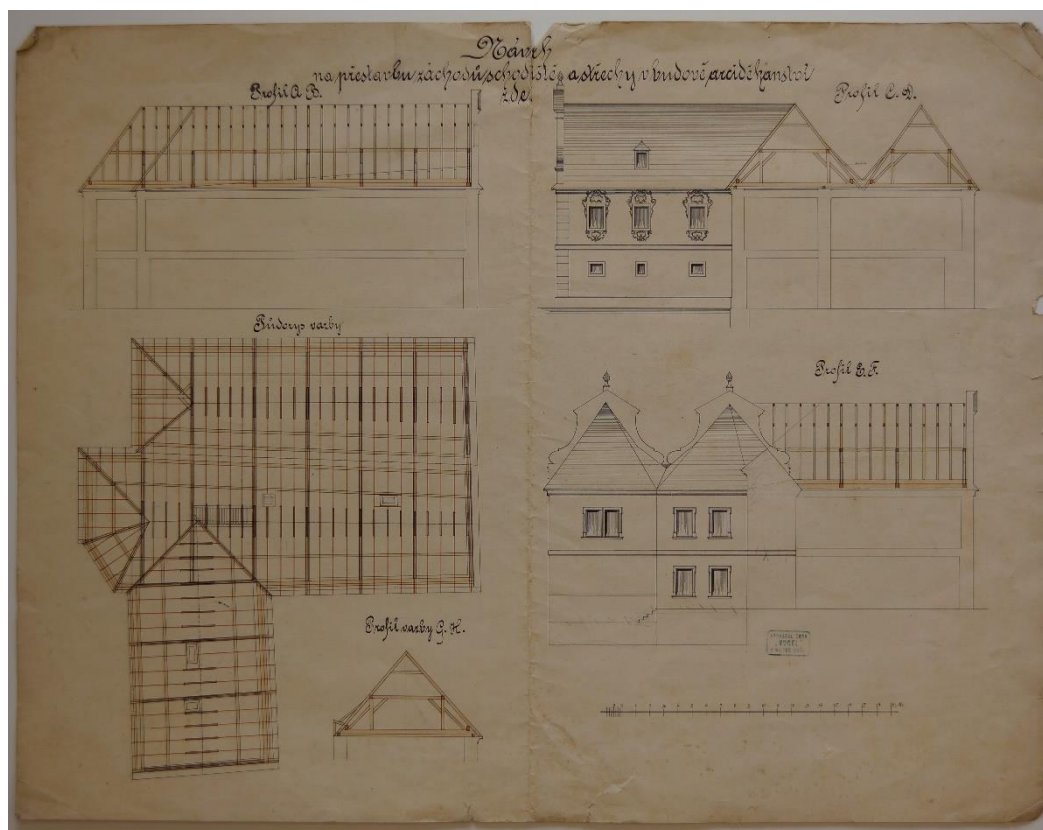 Návrh
na přestavbu záchodů, schodiště, a střechy v budově arciděkanství
zde.
Profil A. B.
Profil C. D.
Půdorys vazby
Profil E. F.
Profil vazby G. H.